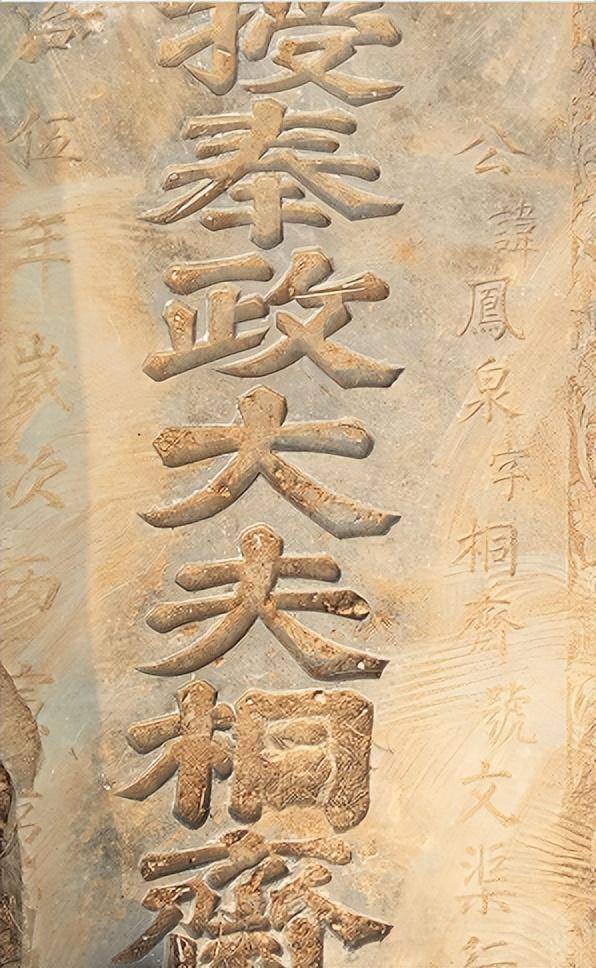 公諱鳳泉字桐齋號文渠行
授奉政大夫桐齋
伍年歲次丙